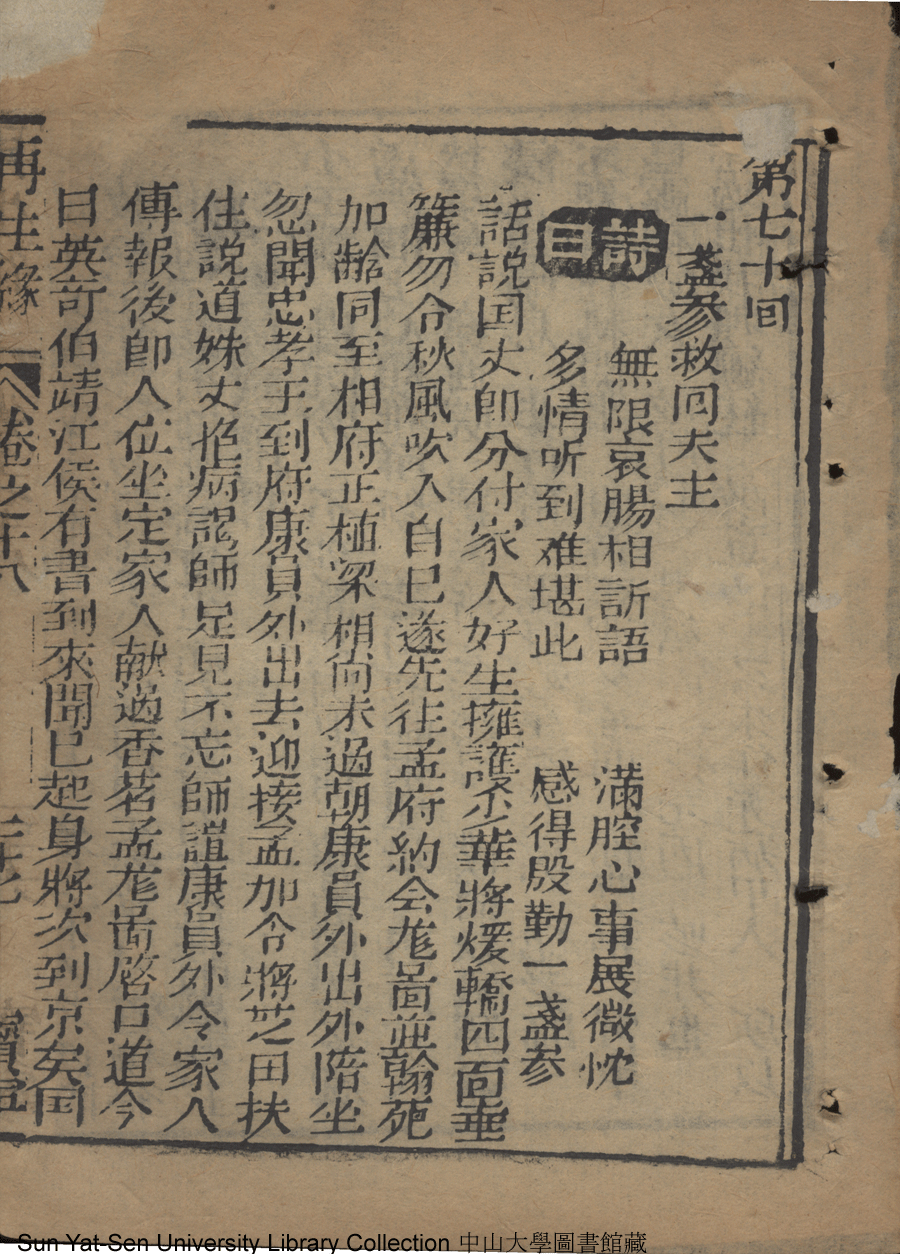 第七十回
一盞参救回夫主
詩曰
無限哀腸相訴語 満腔心事展微忱
多情听到难堪此 感得殷勤一盞参
話說国丈即分付家人好生擁護少華將煖轎四面垂
簾勿令秋風吹入自已遂先往孟府約会龙啚並翰苑
加齡同至相府正植梁相尚未過朝康員外出外陪坐
忽聞忠孝王到府康員外出去迎接孟加令將芝田扶
住說道姝丈抱病認師足見不忘師誼康員外令家人
傳報後即人位坐定家人献過香茗孟龙啚啓口道今
日英奇伯靖江侯有書到來聞已起身將次到京矣国
再生緣 卷之十八
Sun Yat-Sen University Library Collection 中山大學圖書館藏